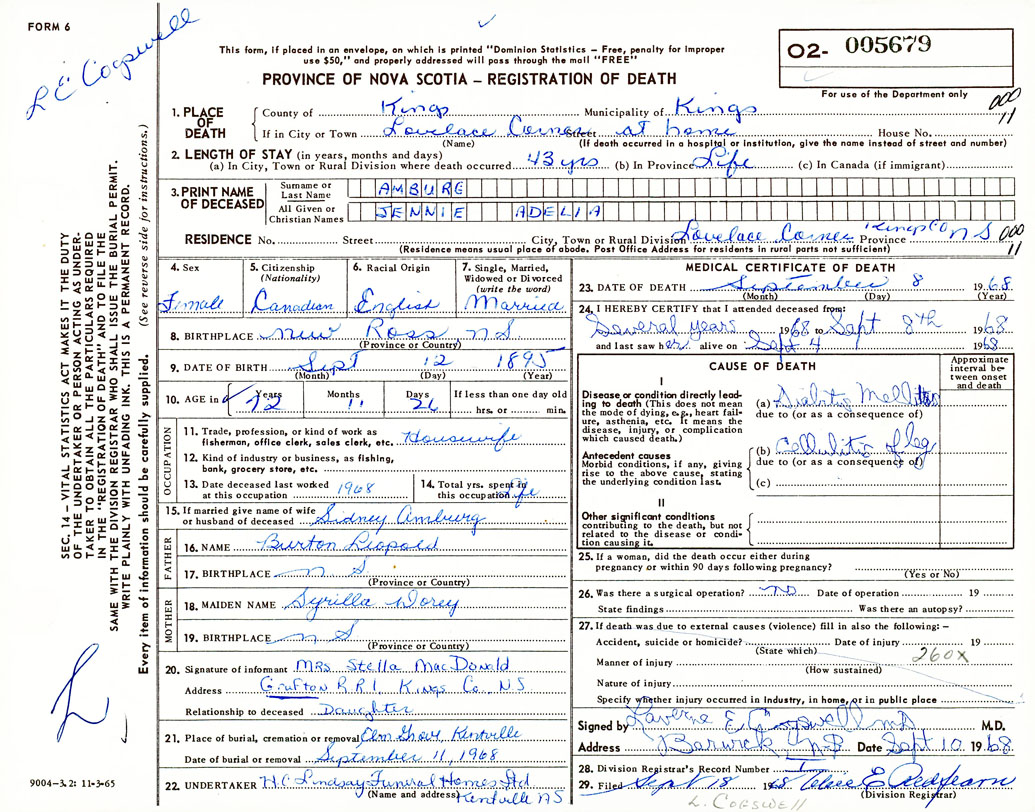 FORM 6
L E Cogswell
This form, if placed in an envelope, on which is printed "Dominion Statistics – Free, penalty for improper
use $50," and properly addressed will pass through the mail "FREE"
PROVINCE OF NOVA SCOTIA – REGISTRATION OF DEATH
O2- 005679
For use of the Department only
000
11
SEC. 14 – VITAL STATISTICS ACT MAKES IT THE DUTY
OF THE UNDERTAKER OR PERSON ACTING AS UNDER-
TAKER TO OBTAIN ALL THE PARTICULARS REQUIRED
IN THE "REGISTRATION OF DEATH" AND TO FILE THE
SAME WITH THE DIVISION REGISTRAR WHO SHALL ISSUE THE BURIAL PERMIT.
WRITE PLAINLY WITH UNFADING INK. THIS IS A PERMANENT RECORD.
Every item of information should be carefully supplied. (See reverse side for instructions.)
1. PLACE OF DEATH
County of Kings Municipality of Kings
If in City or Town Lovelace Corner Street at home House No.
(Name) (If death occurred in a hospital or institution, give the name instead of street and number)
2. LENGTH OF STAY (in years, months and days)
(a) In City, Town or Rural Division where death occurred 43 yrs (b) In Province Life (c) In Canada (if immigrant)
3. PRINT NAME OF DECEASED
Surname or Last Name AMBURG
All Given or Christian Names JENNIE ADELIA
RESIDENCE No. Street City, Town or Rural Division Lovelace Corner Kings Co Province N S
000
11
(Residence means usual place of abode. Post Office Address for residents in rural parts not sufficient)
4. Sex Female
5. Citizenship (Nationality) Canadian
6. Racial Origin English
7. Single, Married, Widowed or Divorced (write the word) Married
8. BIRTHPLACE New Ross N S
(Province or Country)
9. DATE OF BIRTH Sept 12 1895
(Month) (Day) (Year)
10. AGE in Years 72 Months 11 Days 26 If less than one day old
hrs. or min.
OCCUPATION
11. Trade, profession, or kind of work as
fisherman, office clerk, sales clerk, etc. Housewife
12. Kind of industry or business, as fishing,
bank, grocery store, etc.
13. Date deceased last worked
at this occupation 1968
14. Total yrs. spent in
this occupation Life
15. If married give name of wife
or husband of deceased Sidney Amburg
FATHER
16. NAME Burton Leopold
17. BIRTHPLACE N S
(Province or Country)
MOTHER
18. MAIDEN NAME Syrilla Dorey
19. BIRTHPLACE N S
(Province or Country)
20. Signature of informant Mrs Stella MacDonald
Address Grafton R R 1, Kings Co. NS
Relationship to deceased Daughter
21. Place of burial, cremation or removal Elm Grove Kentville
Date of burial or removal September 11, 1968
22. UNDERTAKER H.C. Lindsay Funeral Homes Ltd
(Name and address) Kentville NS
9004–3.2: 11-3-65
MEDICAL CERTIFICATE OF DEATH
23. DATE OF DEATH September 8 1968
(Month) (Day) (Year)
24. I HEREBY CERTIFY that I attended deceased from:
Several years 1968 to Sept 8th 1968
and last saw her alive on Sept 4 1968
CAUSE OF DEATH
Approximate interval between onset and death
I
Disease or condition directly lead-
ing to death (This does not mean
the mode of dying, e.g., heart fail-
ure, asthenia, etc. It means the
disease, injury, or complication
which caused death.)
(a) Diabetis Mellitus
due to (or as a consequence of)
Antecedent causes
Morbid conditions, if any, giving
rise to the above cause, stating
the underlying condition last.
(b) Cellulitis of leg
due to (or as a consequence of)
(c)
II
Other significant conditions
contributing to the death, but not
related to the disease or condi-
tion causing it.
25. If a woman, did the death occur either during
pregnancy or within 90 days following pregnancy?
(Yes or No)
26. Was there a surgical operation? No Date of operation 19
State findings Was there an autopsy?
27. If death was due to external causes (violence) fill in also the following: –
Accident, suicide or homicide? Date of injury 19
(State which)
260X
Manner of injury
(How sustained)
Nature of injury
Specify whether injury occurred in industry, in home, or in public place
Signed by Laverne E. Cogswell MD M.D.
Address Berwick, N.S Date Sept 10 1968
28. Division Registrar's Record Number 1
29. Filed Sept 18 1968
(Division Registrar)
L. COGSWELL